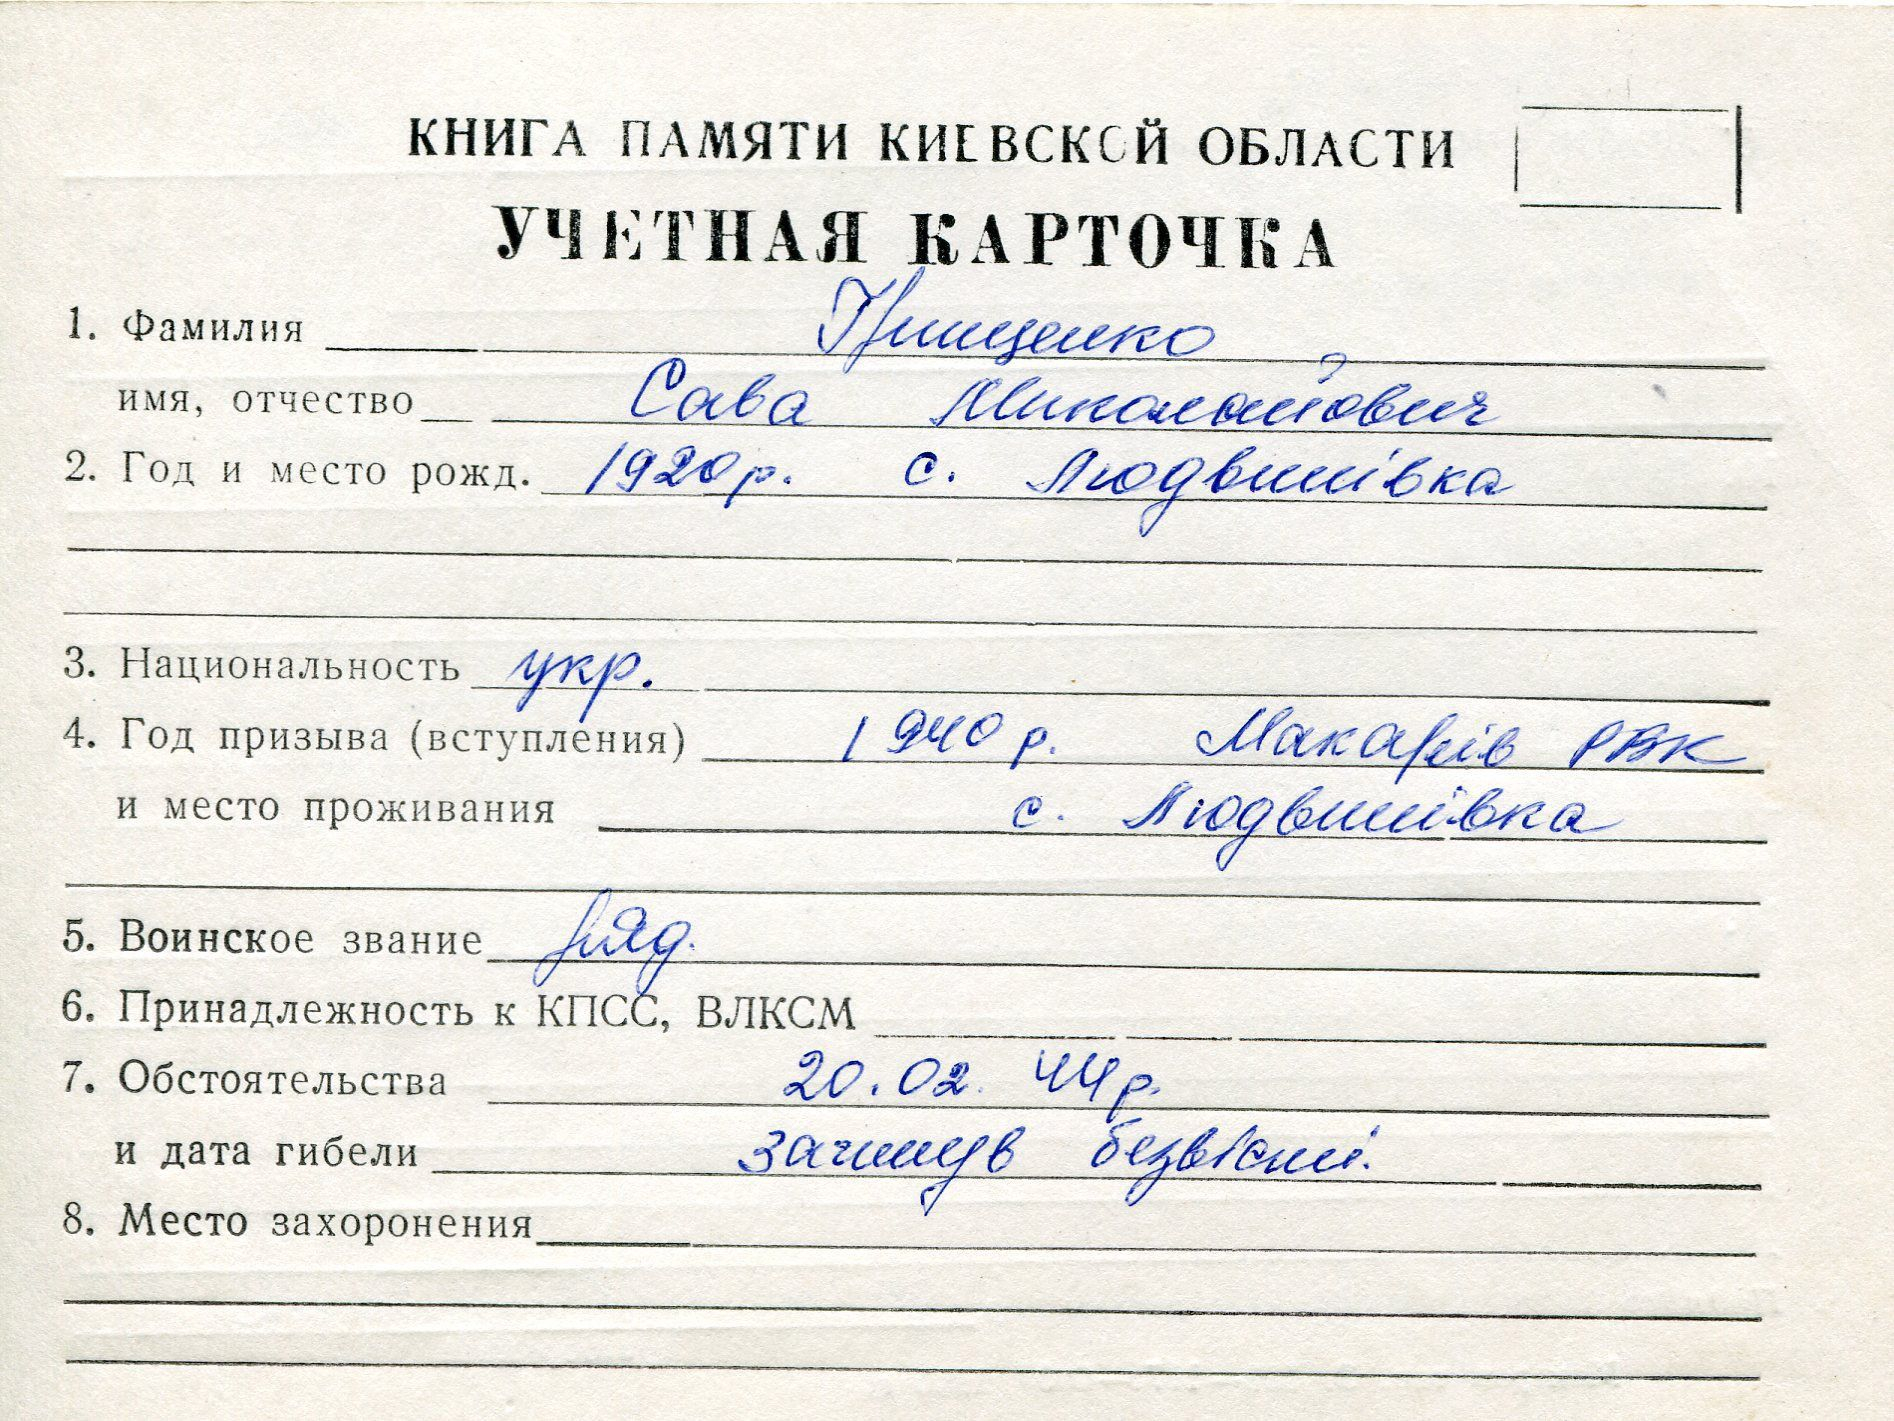 КНИГА ПАМЯТИ КИЕВСКОЙ ОБЛАСТИ
УЧЕТНАЯ КАРТОЧКА
1. Фамилия Грищенко
имя, отчество Сава Миколайович
2. Год и место рожд. 1920 р. с. Людвинівка
3. Национальность укр.
4. Год призыва (вступления) 1940 р. Макарів РВК
и место проживания с. Людвинівка
5. Воинское звание ряд.
6. Принадлежность к КПСС, ВЛКСМ
7. Обстоятельства 20.02.44 р.
и дата гибели загинув безвісті.
8. Место захоронения